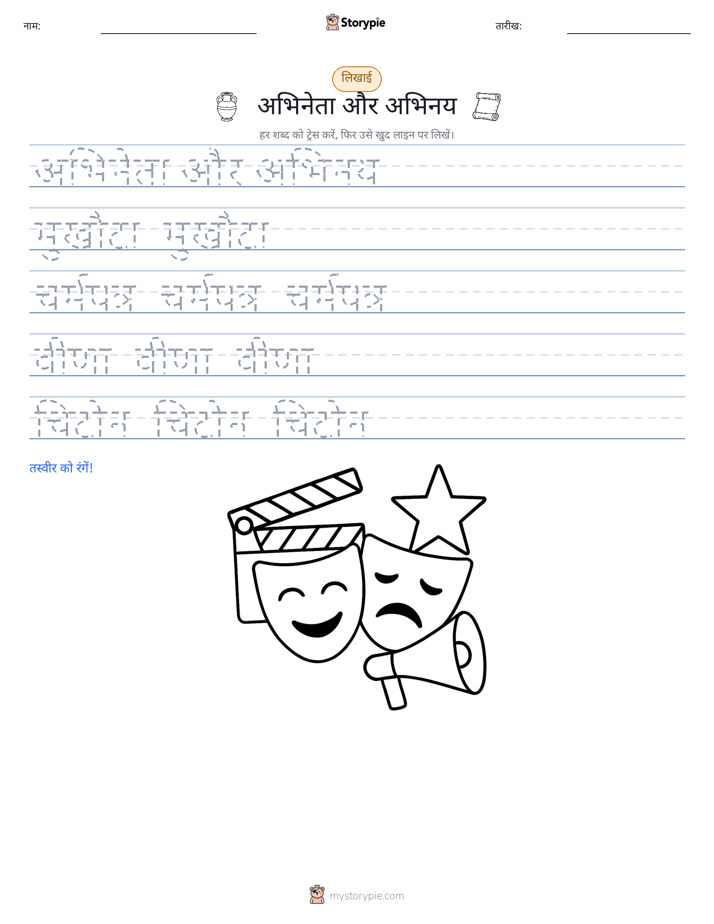 नाम: तारीख:
Storypie
लिखाई
अभिनेता और अभिनय
हर शब्द को ट्रेस करें, फिर उसे खुद लाइन पर लिखें।
अभिनेता और अभिनय
मुखौटा मुखौटा
चर्मपत्र चर्मपत्र चर्मपत्र
वीणा वीणा वीणा
चिटोन चिटोन चिटोन
तस्वीर को रंगें!
mystorypie.com